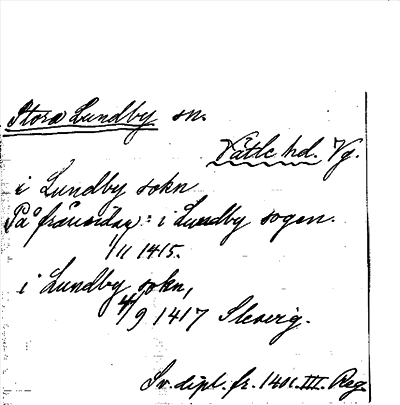 Stora Lundby sn.
Vätle hd. Vg.
i Lundby sokn
På frånsidan: i Lundby sogen.
1/11 1415.
i Lundby sokn,
4/9 1417 Skevig.
Sv. dipl. fr. 1401. III. Reg